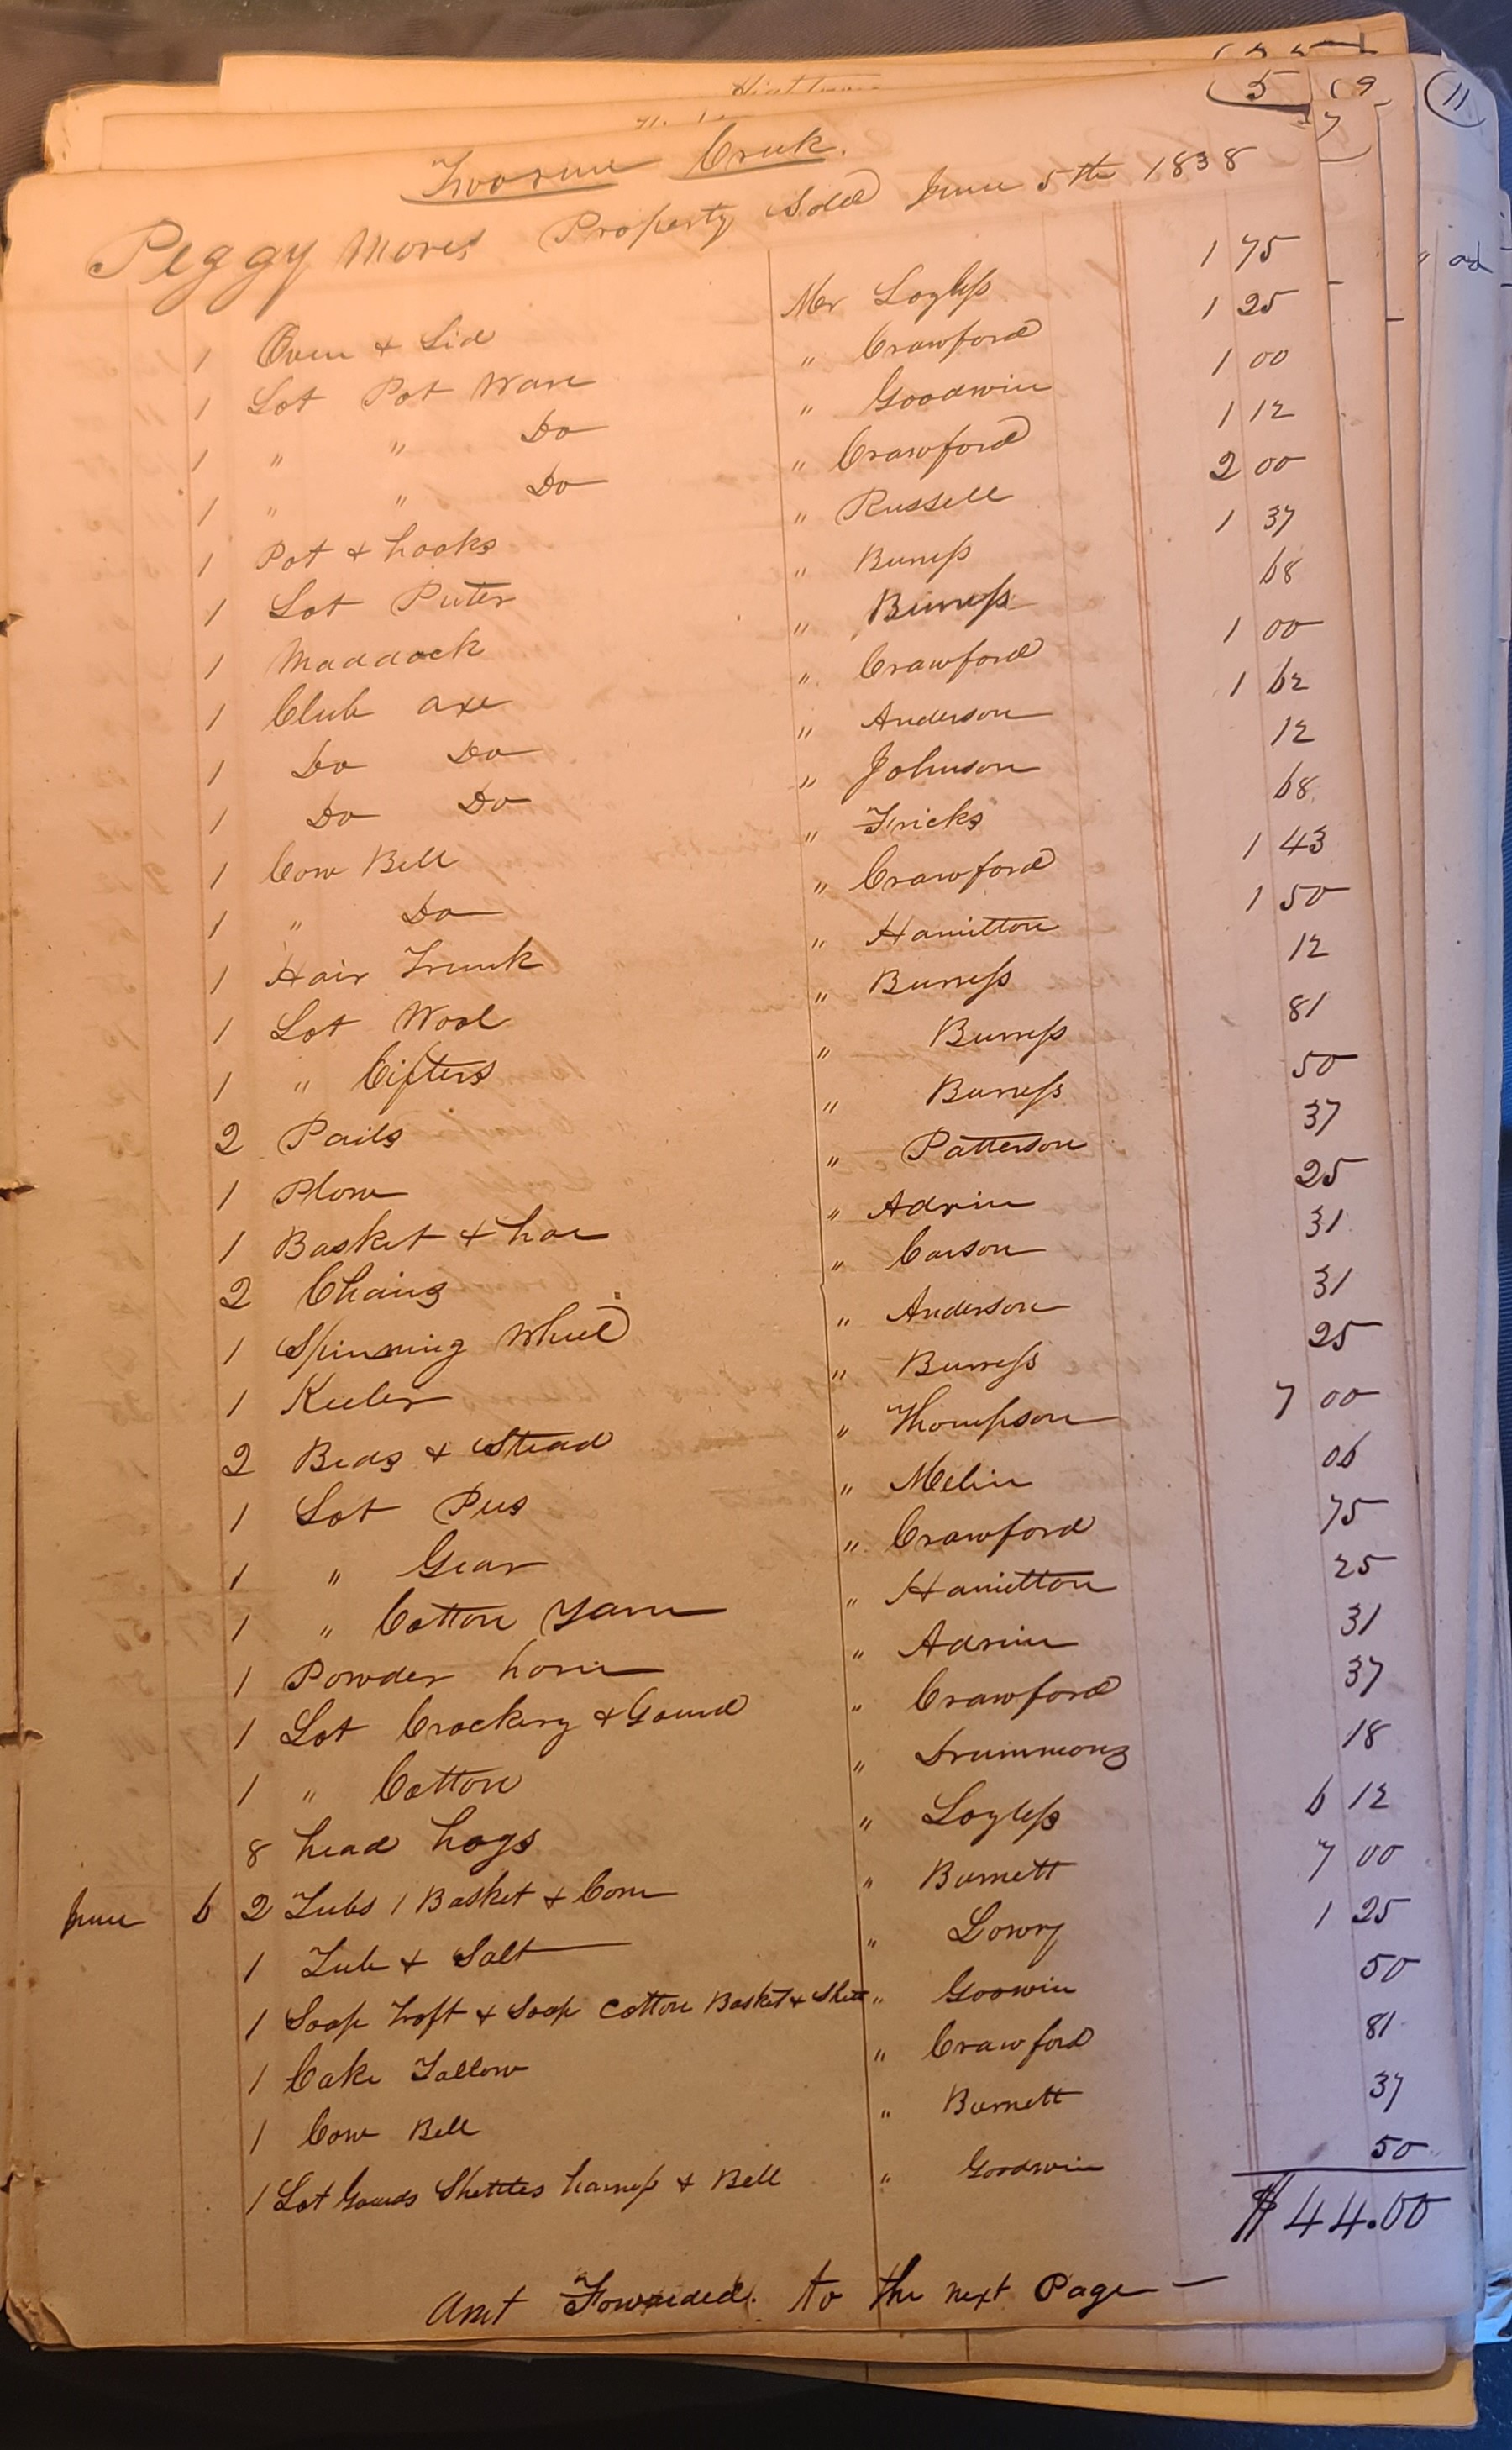 5
9
7
11
Creek.
Peggy Mores Property Sold June 5th 1838
1 Oven & Lid Mr Loyless 1 75
1 Lot Pot Ware " Crawford 1 25
1 " " Do " Goodwin 1 00
1 " " Do " Crawford 1 12
1 Pot & hooks " Russell 2 00
1 Lot Puter " Burress 1 37
1 Maddock " Burress 68
1 Club axe " Crawford 1 00
1 Do Do " Anderson 1 62
1 Do Do " Johnson 12
1 Cow Bell " Fricks 68
1 " Do " Crawford 1 43
1 Hair Trunk " Hamilton 1 50
1 Lot Wool " Burress 12
1 " Cifters " Burress 81
2 Pails " Burress 50
1 Plow " Patterson 37
1 Basket & hoe " Adrin 25
2 Chairs " Carson 31
1 Spinning Wheel " Anderson 31
1 Keeler " Burress 25
2 Beds & Stead " Thompson 7 00
1 Lot Pees " Melin 06
1 " Gear " Crawford 75
1 " Cotton Yarn " Hamilton 25
1 Powder horn " Adrin 31
1 Lot Crockery & Gourd " Crawford 37
1 " Cotton " Drummons 18
8 head hogs " Loyless 6 12
June 6 2 Tubs 1 Basket & Corn " Burnett 7 00
1 Tub & Salt " Lowry 1 25
1 Soap & Soap Cotton Basket & " Goowin 50
1 Cake Tallow " Crawford 81
1 Cow Bell " Burnett 37
1 Lot Gourds Shettles harness & Bell " Goodwin 50
$44.00
Amt Forwarded. to the next Page —